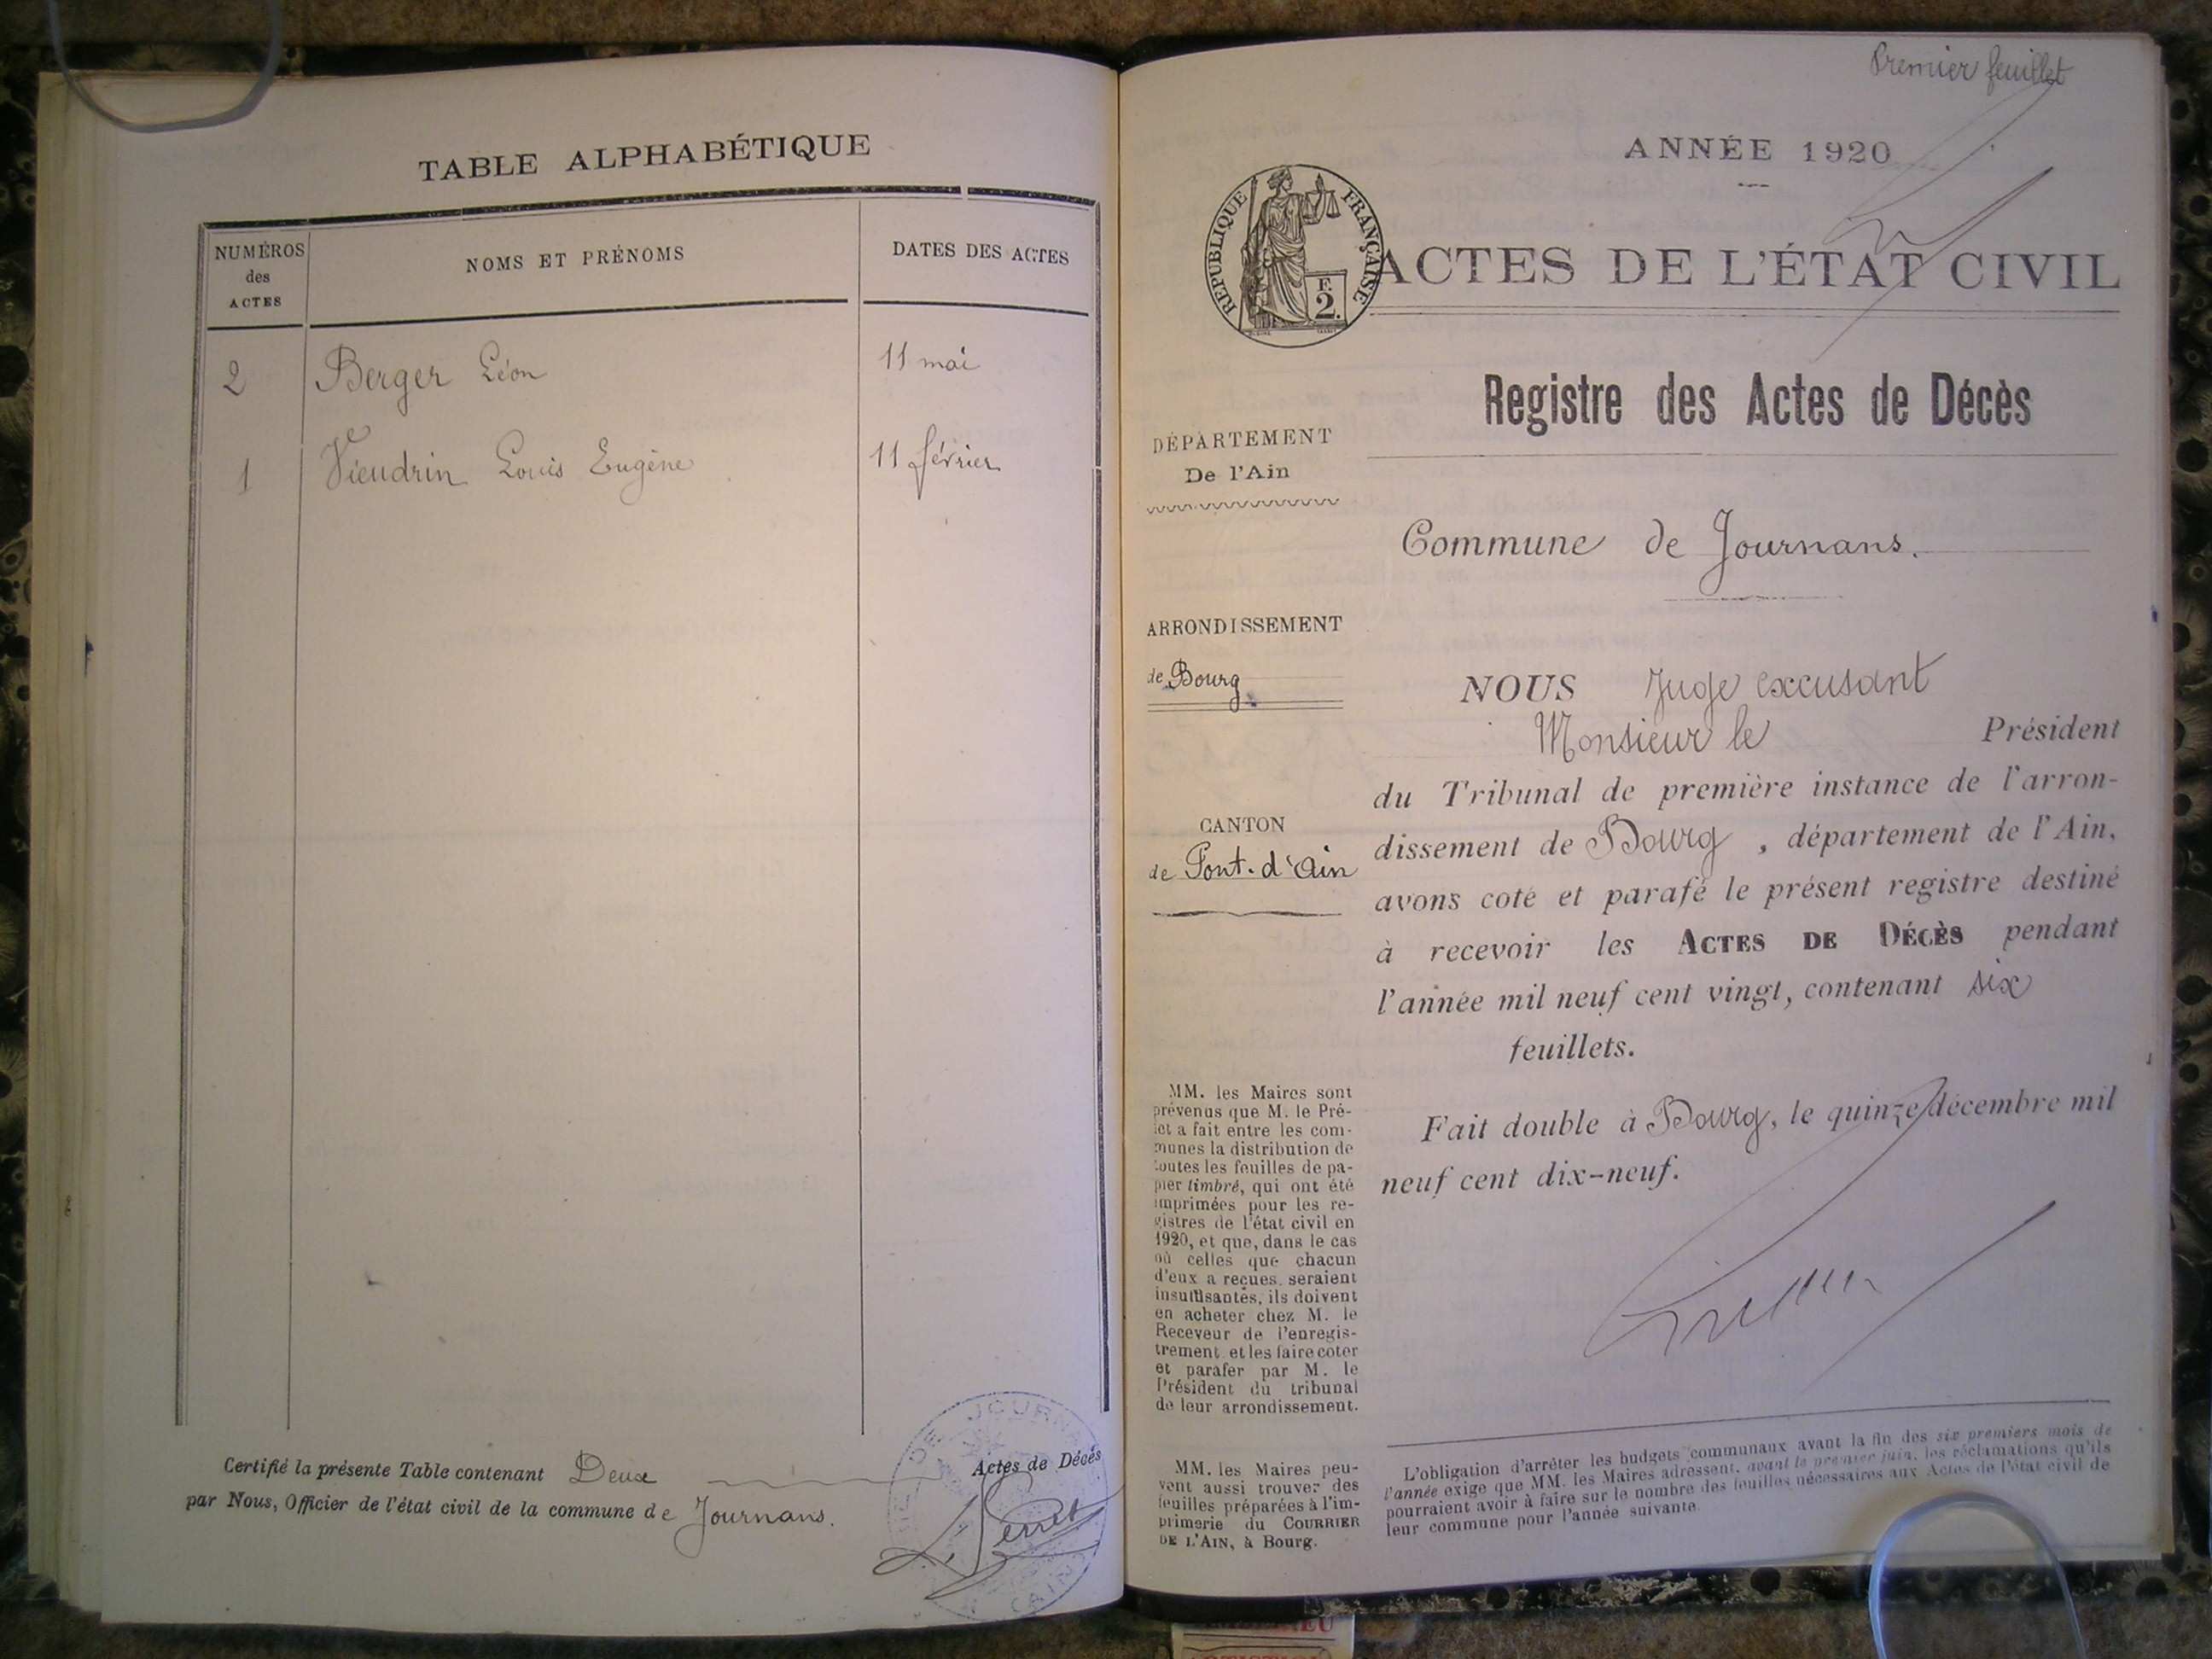 TABLE ALPHABÉTIQUE
NUMÉROS des ACTES
NOMS ET PRÉNOMS
DATES DES ACTES
2 Berger Léon 11 mai
1 Vieudrin Louis Eugène 11 février
Certifié la présente Table contenant Deux Actes de Décès
par Nous, Officier de l'état civil de la commune de Journans.
Perret
Premier feuillet
ANNÉE 1920
RÉPUBLIQUE FRANÇAISE
F. 2.
ACTES DE L'ÉTAT CIVIL
Registre des Actes de Décès
DÉPARTEMENT
De l'Ain
Commune de Journans.
ARRONDISSEMENT
de Bourg
CANTON
de Pont-d'Ain
NOUS Juge excusant
Monsieur le Président
du Tribunal de première instance de l'arron-
dissement de Bourg, département de l'Ain,
avons coté et parafé le présent registre destiné
à recevoir les ACTES DE DÉCÈS pendant
l'année mil neuf cent vingt, contenant six
feuillets.
Fait double à Bourg, le quinze décembre mil
neuf cent dix-neuf.
MM. les Maires sont
prévenus que M. le Pré-
fet a fait entre les com-
munes la distribution de
toutes les feuilles de pa-
pier timbré, qui ont été
imprimées pour les re-
gistres de l'état civil en
1920, et que, dans le cas
où celles que chacun
d'eux a reçues, seraient
insuffisantes, ils doivent
en acheter chez M. le
Receveur de l'enregis-
trement et les faire coter
et parafer par M. le
Président du tribunal
de leur arrondissement.
MM. les Maires peu-
vent aussi trouver des
feuilles préparées à l'im-
primerie du COURRIER
DE L'AIN, à Bourg.
L'obligation d'arrêter les budgets communaux avant la fin des six premiers mois de
l'année exige que MM. les Maires adressent, avant le premier juin, les réclamations qu'ils
pourraient avoir à faire sur le nombre des feuilles nécessaires aux Actes de l'état civil de
leur commune pour l'année suivante.